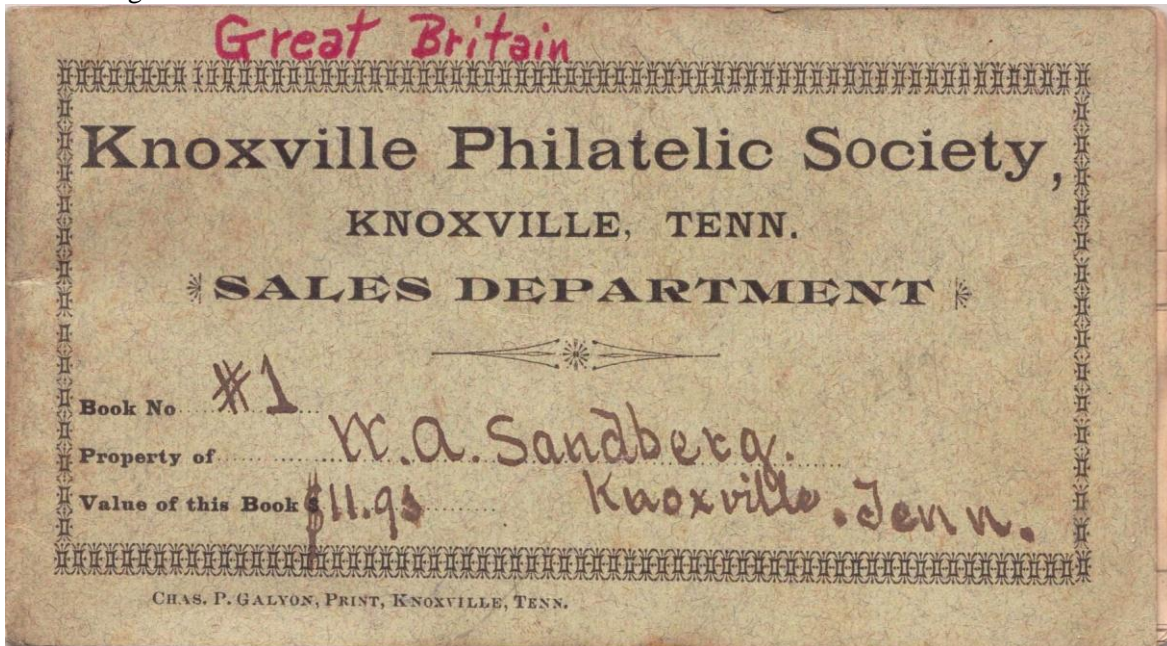 Great Britain
Knoxville Philatelic Society,
KNOXVILLE, TENN.
SALES DEPARTMENT
Book No #1
Property of W. A. Sandberg.
Value of this Book $ $11.93 Knoxville. Tenn.
CHAS. P. GALYON, PRINT, KNOXVILLE, TENN.